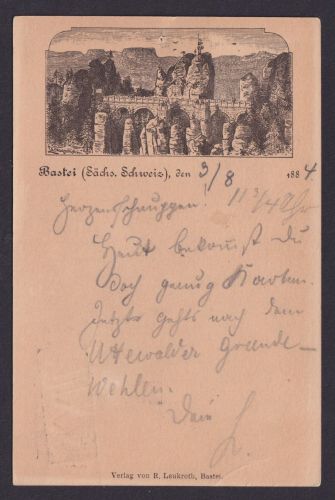 Bastei (Sächs. Schweiz), den 3/8 1884.
11 3/4 Uhr
Herzensschnuppen!
Heut bekom̅st du
doch genug Karten.
Jetzt gehts nach dem
Uttewalder Grunde –
Wehlen.
Dein
L.
Verlag von R. Leukroth, Bastei.